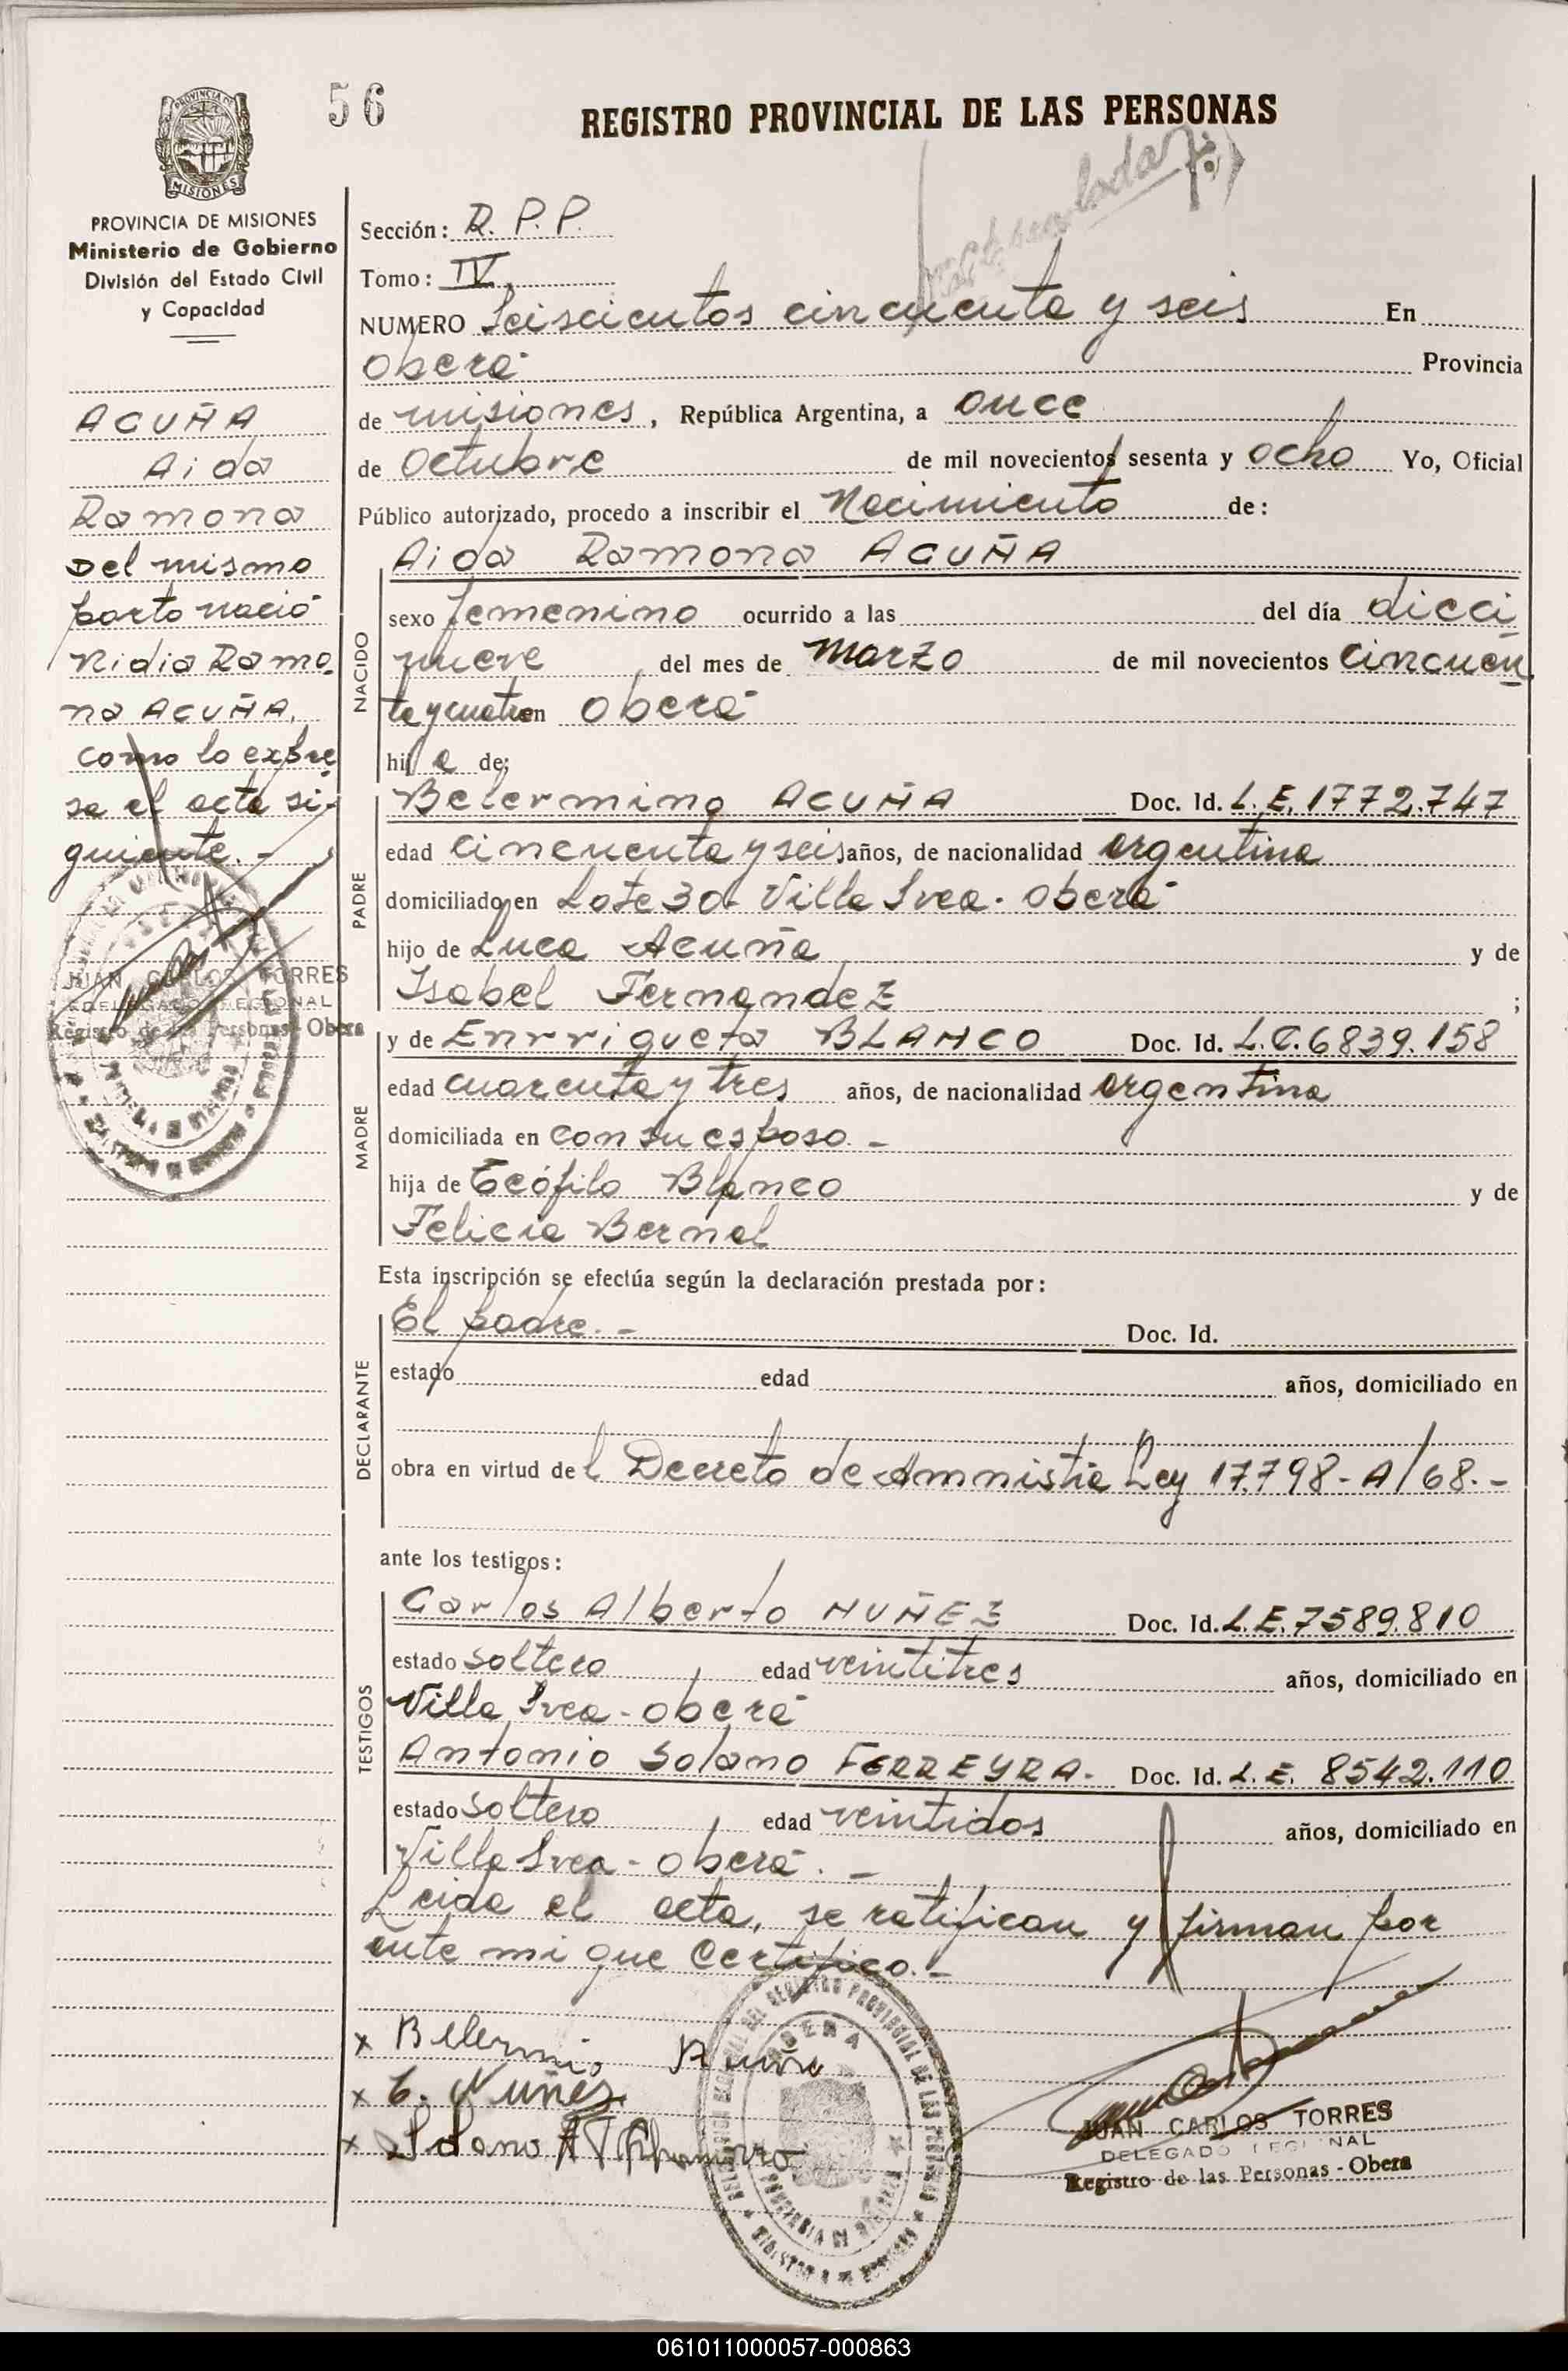 56
REGISTRO PROVINCIAL DE LAS PERSONAS
PROVINCIA DE MISIONES
MISIONES
PROVINCIA DE MISIONES
Ministerio de Gobierno
División del Estado Civil
y Capacidad
ACUÑA
Aida
Ramona
Del mismo
parto nació
Nidia Ramo
na ACUÑA,
como lo expre
sa el acta si-
guiente.-
JUAN CARLOS TORRES
DELEGADO REGIONAL
Registro de las Personas - Obera
Sección: R. P. P.
Tomo: IV.
NUMERO Seiscientos cincuenta y seis En
Oberá Provincia
de misiones, República Argentina, a once
de Octubre de mil novecientos sesenta y ocho Yo, Oficial
Público autorizado, procedo a inscribir el Nacimiento de:
Aida Ramona ACUÑA
NACIDO
sexo femenino ocurrido a las del día dieci
nueve del mes de Marzo de mil novecientos cincuen
ta y cuatro en Oberá
hij a de:
PADRE
Belermino ACUÑA Doc. Id. L.E. 1772.747
edad cincuenta y seis años, de nacionalidad argentina
domiciliado en Lote 30- Villa Svea- Oberá
hijo de Luca Acuña y de
Isabel Fernandez ;
MADRE
y de Enrriqueta BLANCO Doc. Id. L.C. 6839.158
edad cuarenta y tres años, de nacionalidad argentina
domiciliada en con su esposo.-
hija de Teófilo Blanco y de
Felicia Bernal
Esta inscripción se efectúa según la declaración prestada por:
DECLARANTE
El padre.- Doc. Id.
estado edad años, domiciliado en
obra en virtud de l Decreto de Amnistia Ley 17.798-A/68.-
ante los testigos:
TESTIGOS
Carlos Alberto NUÑEZ Doc. Id. L.E. 7589.810
estado soltero edad veintitres años, domiciliado en
Villa Svea-Oberá
Antonio Solano FERREYRA- Doc. Id. L.E. 8542.110
estado soltero edad veintidos años, domiciliado en
Villa Svea-Oberá.-
Leida el acta, se ratifican y firman por
ante mi que Certifico.-
x Belermino Acuña
x C. Nuñez
x Solano
JUAN CARLOS TORRES
DELEGADO REGIONAL
Registro de las Personas - Obera
061011000057-000863